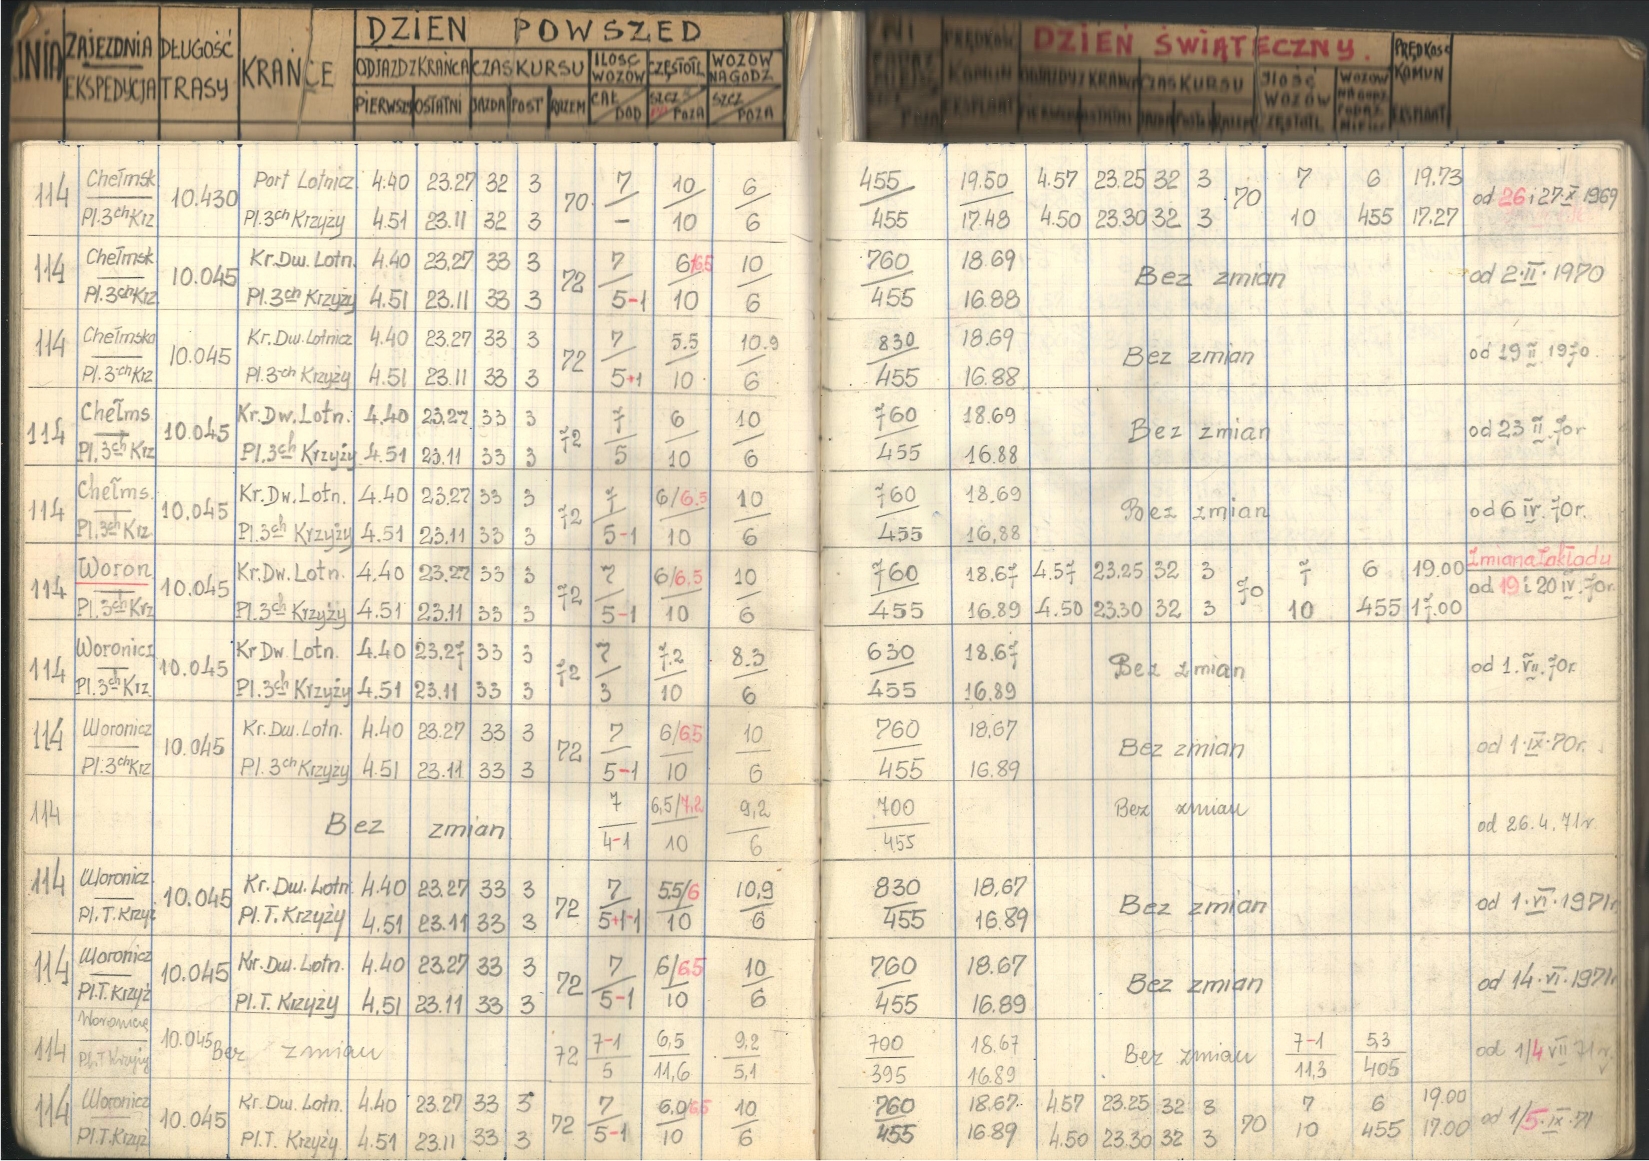 LINIA ZAJEZDNIA EKSPEDYCJA DŁUGOŚĆ TRASY KRAŃCE DZIEŃ POWSZED
ODJAZD Z KRAŃCA CZAS KURSU ILOŚĆ WOZÓW CZĘSTOTL WOZÓW NA GODZ
PIERWSZY OSTATNI JAZDA POST RAZEM CAŁ DOD SZCZ POZA SZCZ POZA
DZIEŃ ŚWIĄTECZNY.
PRĘDKOŚĆ KOMUN EKSPLOAT
CZAS KURSU ILOŚĆ WOZÓW
114 Chełmsk 10.430 Port Lotnicz 4.40 23.27 32 3 70 7 10 6 455 19.50 4.57 23.25 32 3 70 7 6 19.73 od 26 i 27·X 1969
Pl.3ch Krz Pl.3ch Krzyży 4.51 23.11 32 3 – 10 6 455 17.48 4.50 23.30 32 3 10 455 17.27
114 Chełmsk 10.045 Kr.Dw.Lotn. 4.40 23.27 33 3 72 7 6/6.5 10 760 18.69 Bez zmian od 2·II·1970
Pl.3ch Krz Pl.3ch Krzyży 4.51 23.11 33 3 5-1 10 6 455 16.88
114 Chełmska 10.045 Kr.Dw.Lotnicz 4.40 23.27 33 3 72 7 5.5 10.9 830 18.69 Bez zmian od 19 II 1970.
Pl.3-ch Krz Pl.3-ch Krzyży 4.51 23.11 33 3 5+1 10 6 455 16.88
114 Chełms 10.045 Kr.Dw.Lotn. 4.40 23.27 33 3 72 7 6 10 760 18.69 Bez zmian od 23 II.70r
Pl.3ch Krz Pl.3ch Krzyży 4.51 23.11 33 3 5 10 6 455 16.88
114 Chełms. 10.045 Kr.Dw.Lotn. 4.40 23.27 33 3 72 7 6/6.5 10 760 18.69 Bez zmian od 6 IV.70r.
Pl.3ch Krz Pl.3ch Krzyży 4.51 23.11 33 3 5-1 10 6 455 16,88
114 Woron 10.045 Kr.Dw.Lotn. 4.40 23.27 33 3 72 7 6/6.5 10 760 18.67 4.57 23.25 32 3 70 7 6 19.00 Zmiana Zakładu od 19 i 20 IV.70r.
Pl.3ch Krz Pl.3ch Krzyży 4.51 23.11 33 3 5-1 10 6 455 16.89 4.50 23.30 32 3 10 455 17.00
114 Woronicz 10.045 Kr Dw Lotn. 4.40 23.27 33 3 72 7 7.2 8.3 630 18.67 Bez zmian od 1.VII.70r.
Pl.3ch Krz Pl.3ch Krzyży 4.51 23.11 33 3 3 10 6 455 16.89
114 Woronicz 10.045 Kr.Dw.Lotn. 4.40 23.27 33 3 72 7 6/6.5 10 760 18.67 Bez zmian od 1·IX·70r.
Pl.3ch Krz Pl.3ch Krzyży 4.51 23.11 33 3 5-1 10 6 455 16.89
114 Bez zmian 7 6,5/7,2 9,2 700 Bez zmian od 26.4.71r.
4-1 10 6 455
114 Woronicz 10.045 Kr.Dw.Lotn 4.40 23.27 33 3 72 7 5.5/6 10,9 830 18.67 Bez zmian od 1·VI·1971r
Pl.T.Krzyż Pl.T.Krzyży 4.51 23.11 33 3 5+1-1 10 6 455 16.89
114 Woronicz 10.045 Kr.Dw.Lotn. 4.40 23.27 33 3 72 7 6/6.5 10 760 18.67 Bez zmian od 14·VI·1971r
Pl.T.Krzyż Pl.T. Krzyży 4.51 23.11 33 3 5-1 10 6 455 16.89
114 Woronicz 10.045 Bez zmian 72 7-1 6,5 9,2 700 18.67 Bez zmian 7-1 5,3 od 1/4 VII 71r.
Pl.T Krzyży 5 11,6 5,1 395 16.89 11,3 405
114 Woronicz 10.045 Kr.Dw.Lotn. 4.40 23.27 33 3 72 7 6,0/6.5 10 760 18.67 4.57 23.25 32 3 70 7 6 19.00 od 1/5·IX·71
Pl.T.Krzyż Pl.T. Krzyży 4.51 23.11 33 3 5-1 10 6 455 16.89 4.50 23.30 32 3 10 455 17.00